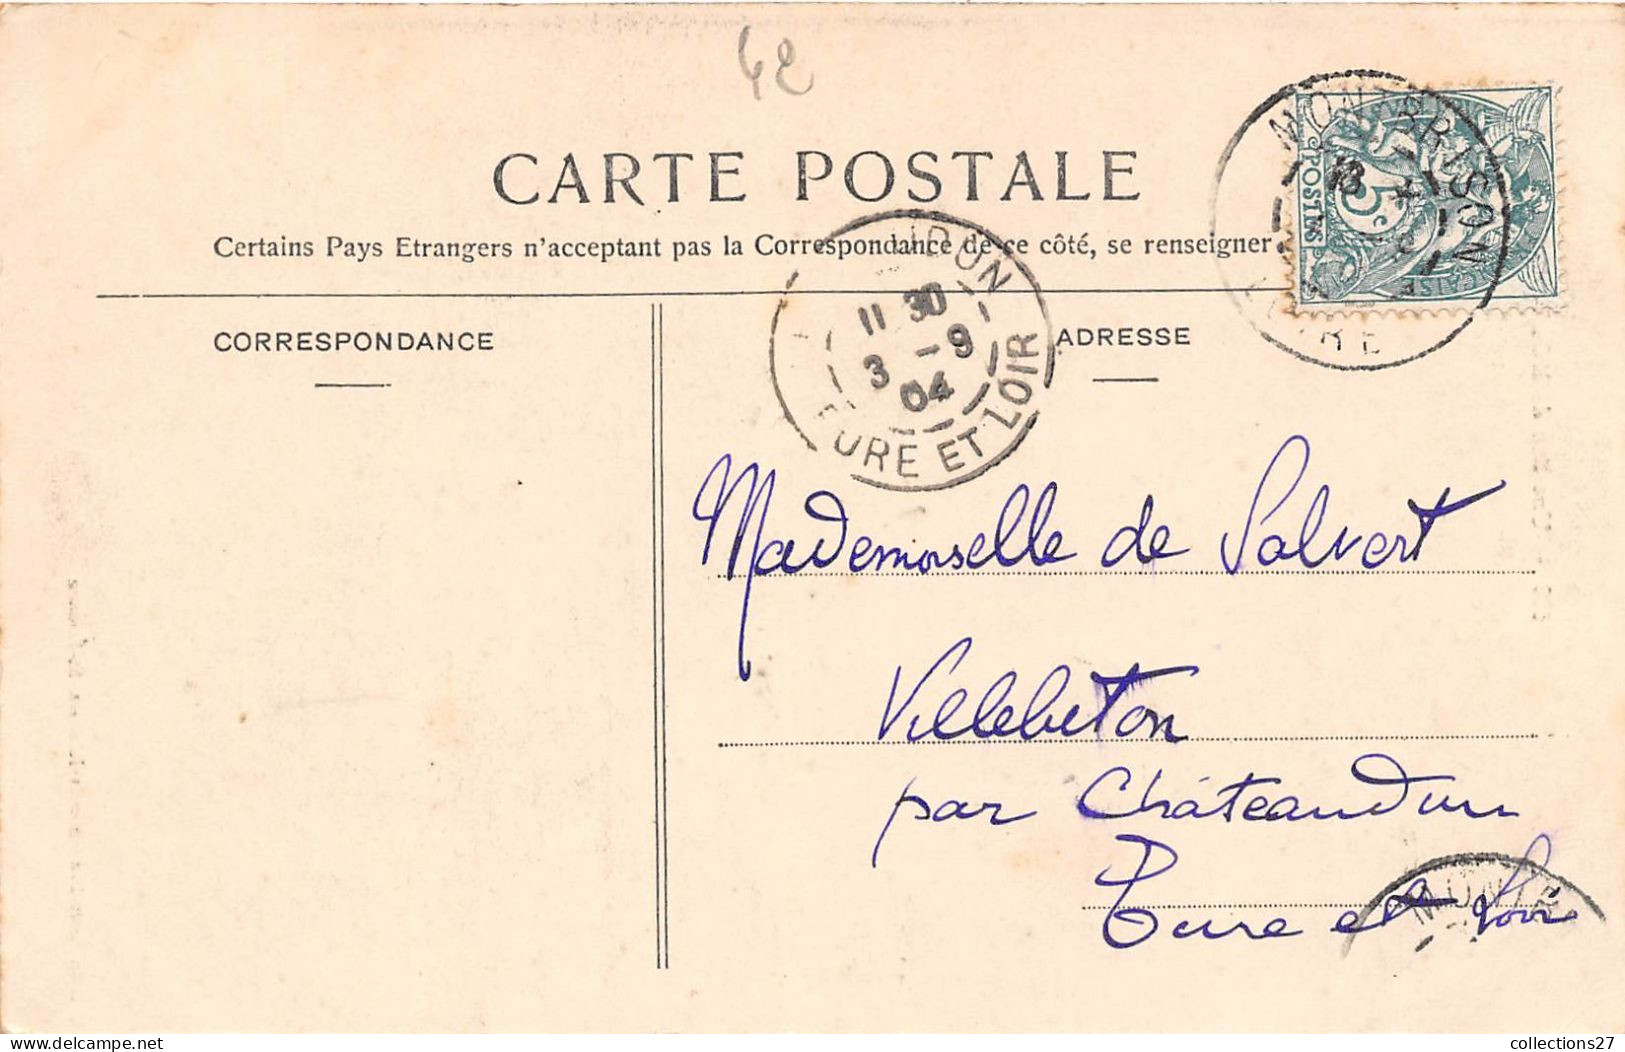 42
CARTE POSTALE
Certains Pays Etrangers n'acceptant pas la Correspondance de ce côté, se renseigner
MONTBRISON
LOIRE
POSTES
5c
UDUN
11 30
3 - 9
04
EURE ET LOIR
CORRESPONDANCE
ADRESSE
Mademoiselle de Salvert
Villebeton
par Châteaudun
Eure et Loir
MONTB
delcampe.net
collections27